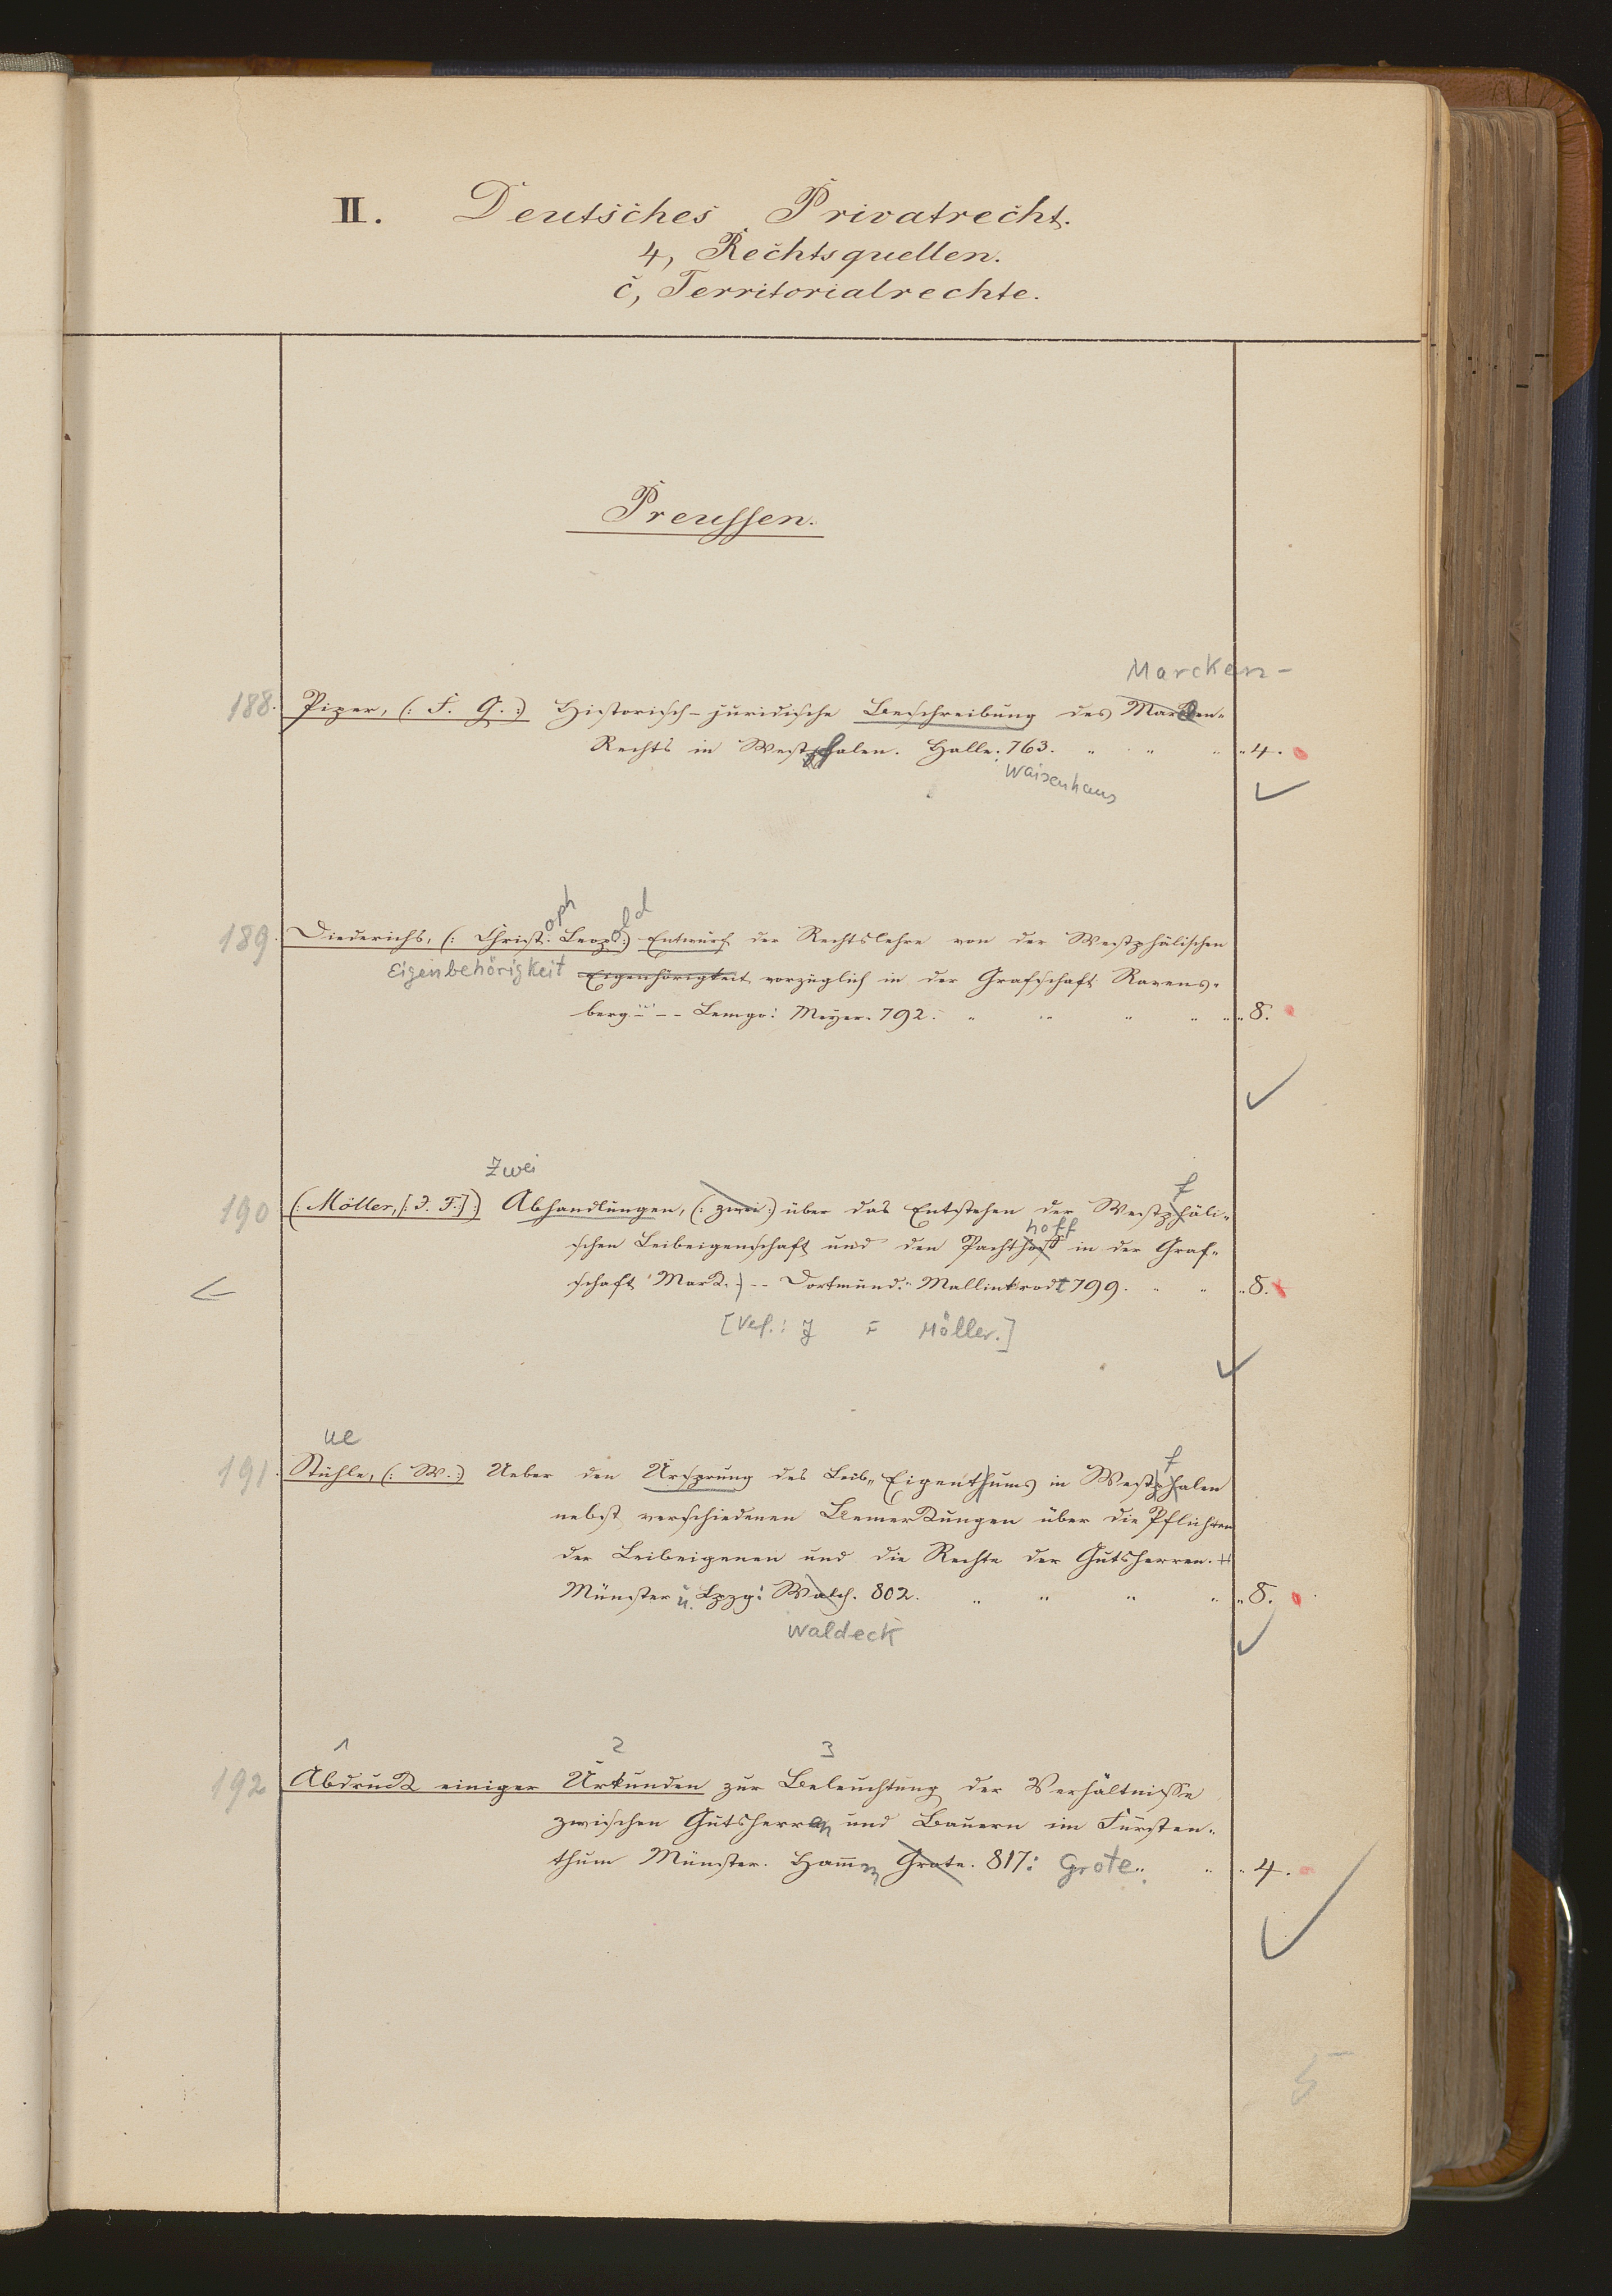 II. Deutsches Privatrecht.
4, Rechtsquellen.
c, Territorialrechte.
Preussen.
Marcken-
188. Piper, (: F. G. :) Historisch-juridische Beschreibung des Marcken-
Rechts in Westfalen. Halle: 763. " " " " 4.
Waisenhaus
oph ld
189. Diederichs, (: Christ. Leop. :) Entwurf der Rechtslehre von der Westphälischen
Eigenbehörigkeit Eigenhörigkeit vorzüglich in der Grafschaft Ravens-
berg. -- Lemgo: Meyer. 792. " " " " " 8.
Zwei f
190 (: Möller, [: J. F. :] :) Abhandlungen, (: zwei :) über das Entstehen der Westphäli-
hoff
schen Leibeigenschaft und den Pachthoff in der Graf-
schaft Mark. -- Dortmund: Mallinkrodt 799. " " " 8.
[Verf.: J F Möller.]
ue f
191. Stühle, (: W. :) Ueber den Ursprung des Leib-Eigenthums in Westphalen
nebst verschiedenen Bemerkungen über die Pflichten
der Leibeigenen und die Rechte der Gutsherren.
Münster u. Lpzg: Walch. 802. " " " " " 8.
Waldeck
1 2 3
192 Abdruck einiger Urkunden zur Beleuchtung der Verhältnisse
zwischen Gutsherren und Bauern im Fürsten-
thum Münster. Hamm Grote. 817: Grote. " " 4.
5